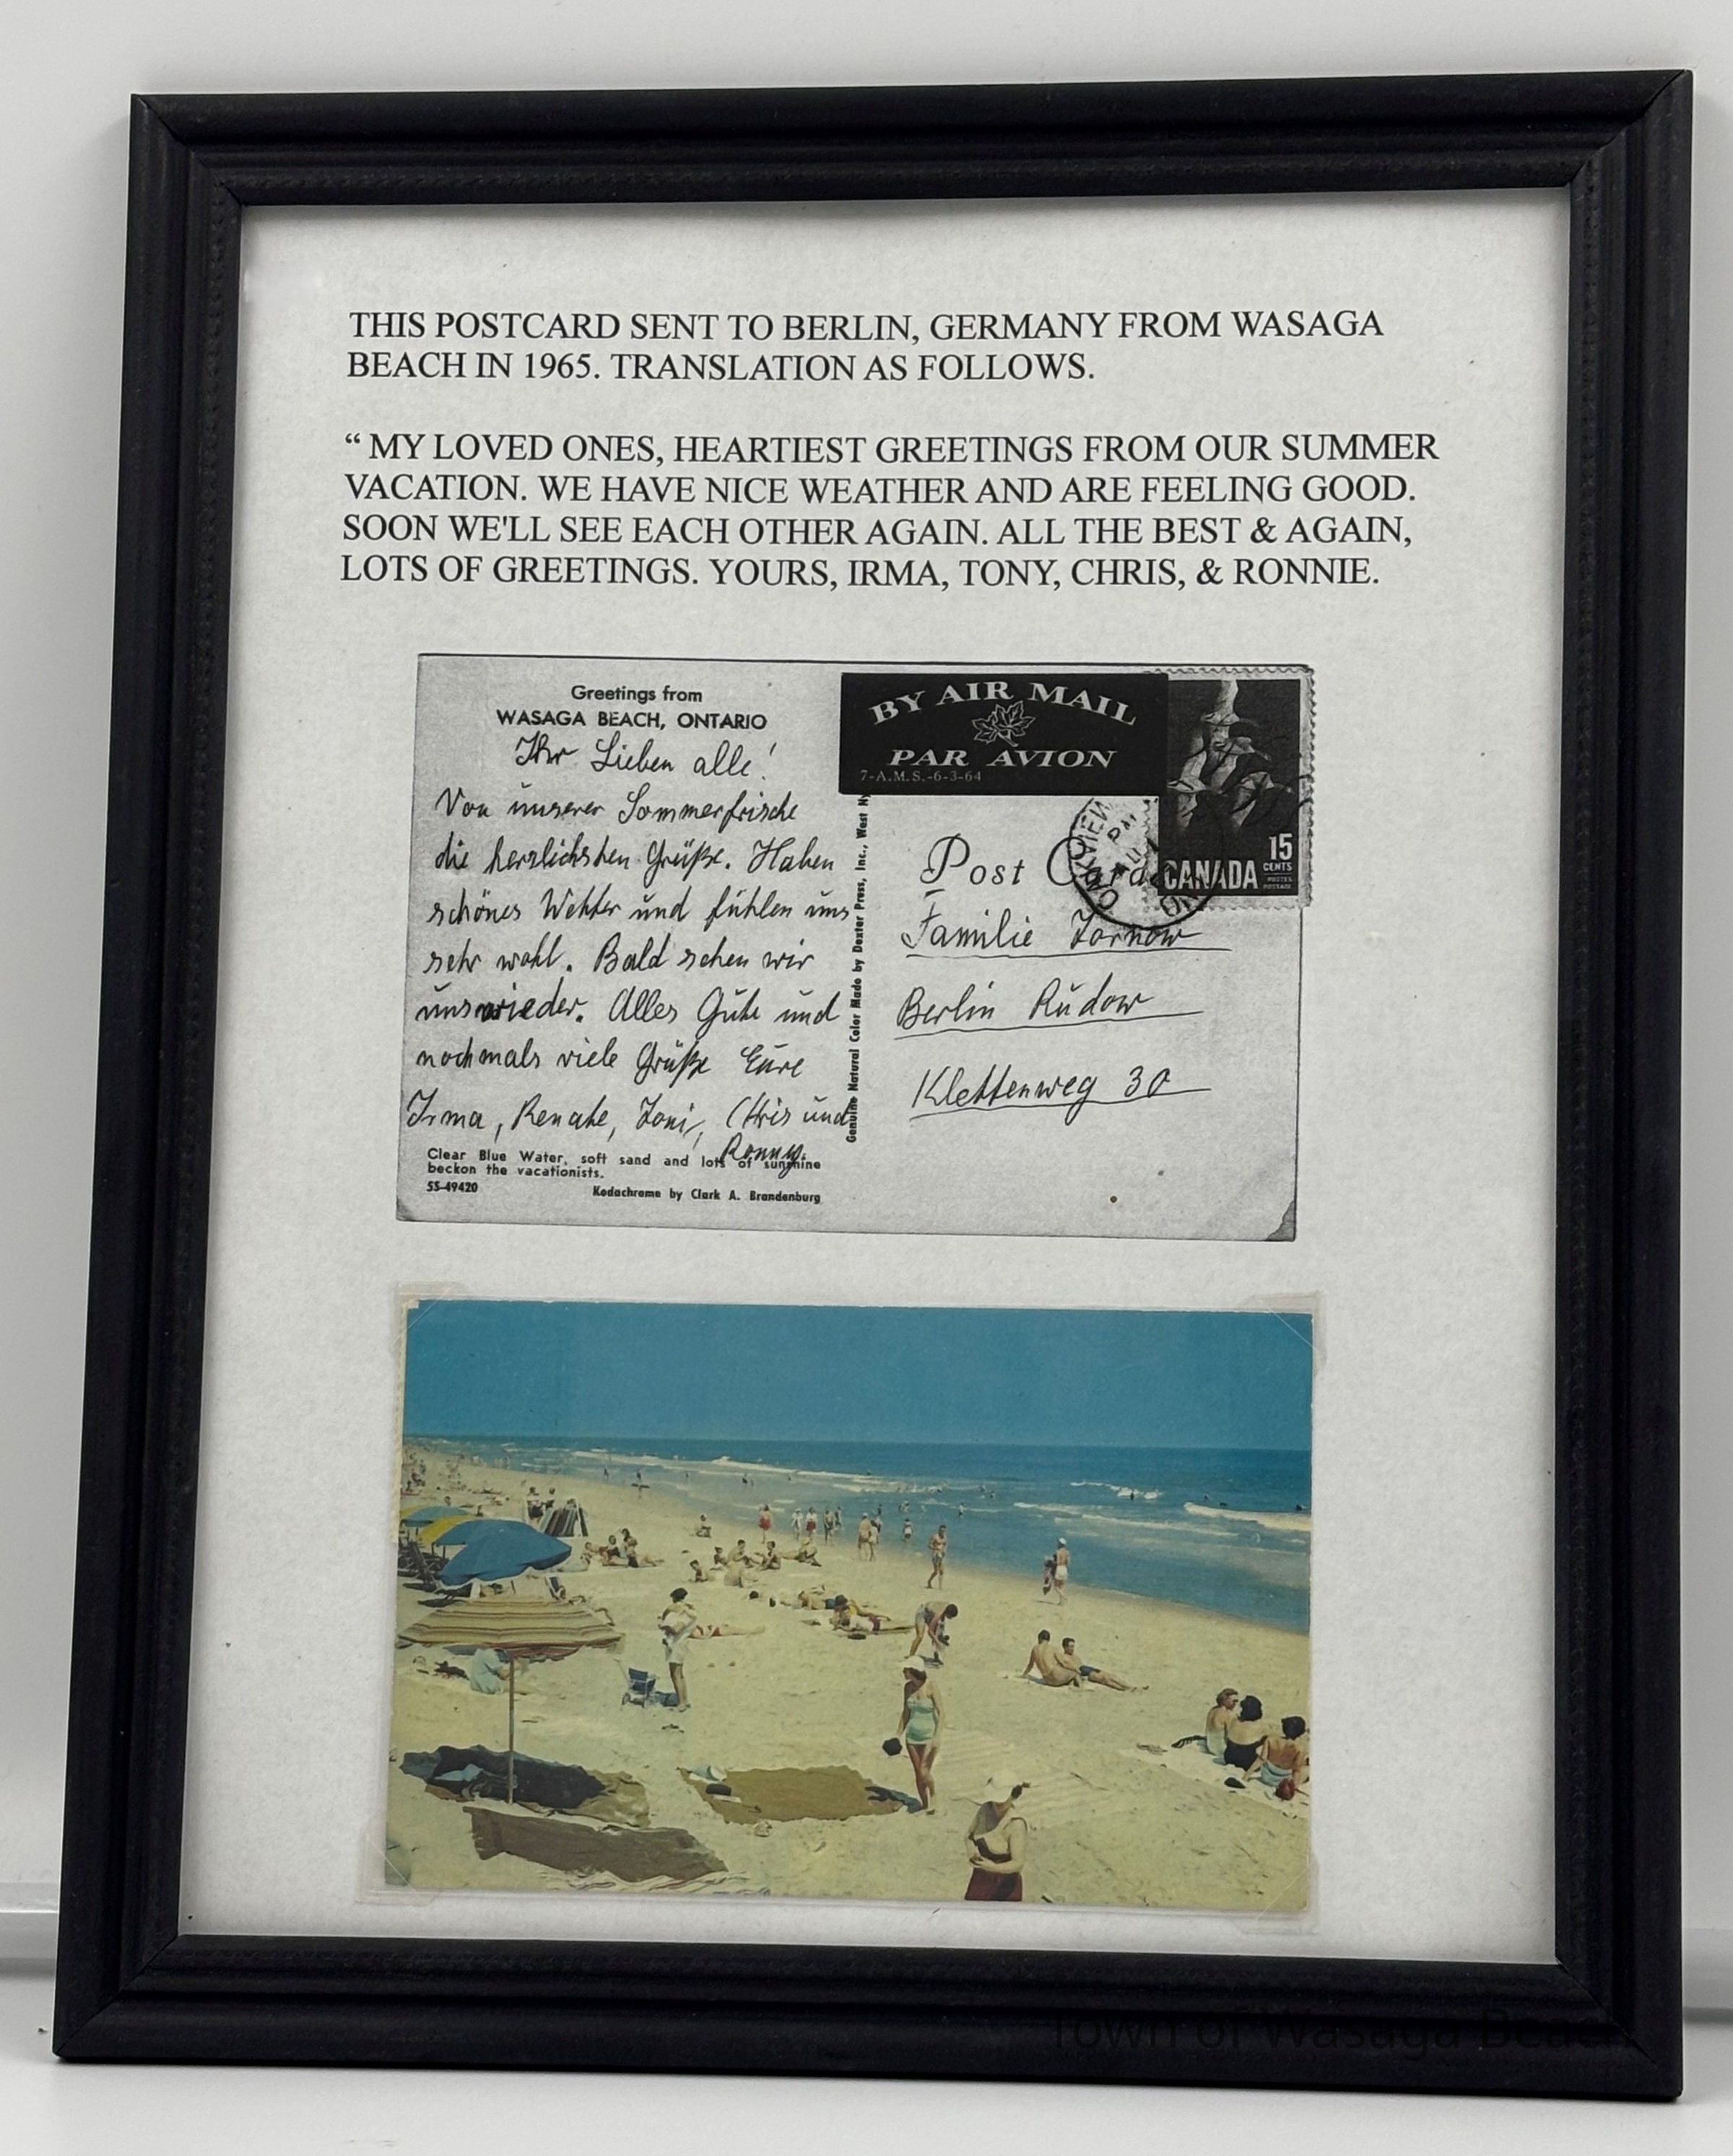 THIS POSTCARD SENT TO BERLIN, GERMANY FROM WASAGA
BEACH IN 1965. TRANSLATION AS FOLLOWS.
“ MY LOVED ONES, HEARTIEST GREETINGS FROM OUR SUMMER
VACATION. WE HAVE NICE WEATHER AND ARE FEELING GOOD.
SOON WE'LL SEE EACH OTHER AGAIN. ALL THE BEST & AGAIN,
LOTS OF GREETINGS. YOURS, IRMA, TONY, CHRIS, & RONNIE.
Greetings from
WASAGA BEACH, ONTARIO
Ihr Lieben alle!
Von unserer Sommerfrische
die herzlichsten Grüße. Haben
schönes Wetter und fühlen uns
sehr wohl. Bald sehen wir
uns wieder. Alles Gute und
nochmals viele Grüße Eure
Irma, Renate, Toni, Chris und
Ronny.
Clear Blue Water, soft sand and lots of sunshine
beckon the vacationists.
SS-49420
Kodachrome by Clark A. Brandenburg
Genuine Natural Color Made by Dexter Press, Inc., West Ny
BY AIR MAIL
PAR AVION
7-A.M.S.-6-3-64
15
CENTS
POSTES
POSTAGE
CANADA
Post Card
Familie Zornow
Berlin Rudow
Klettenweg 30
Town of Wasaga Beach